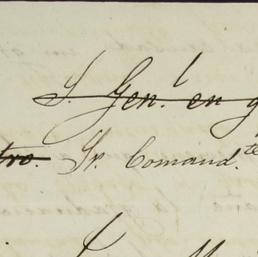 S. Gen.l en g
tro. Sr. Comand.te